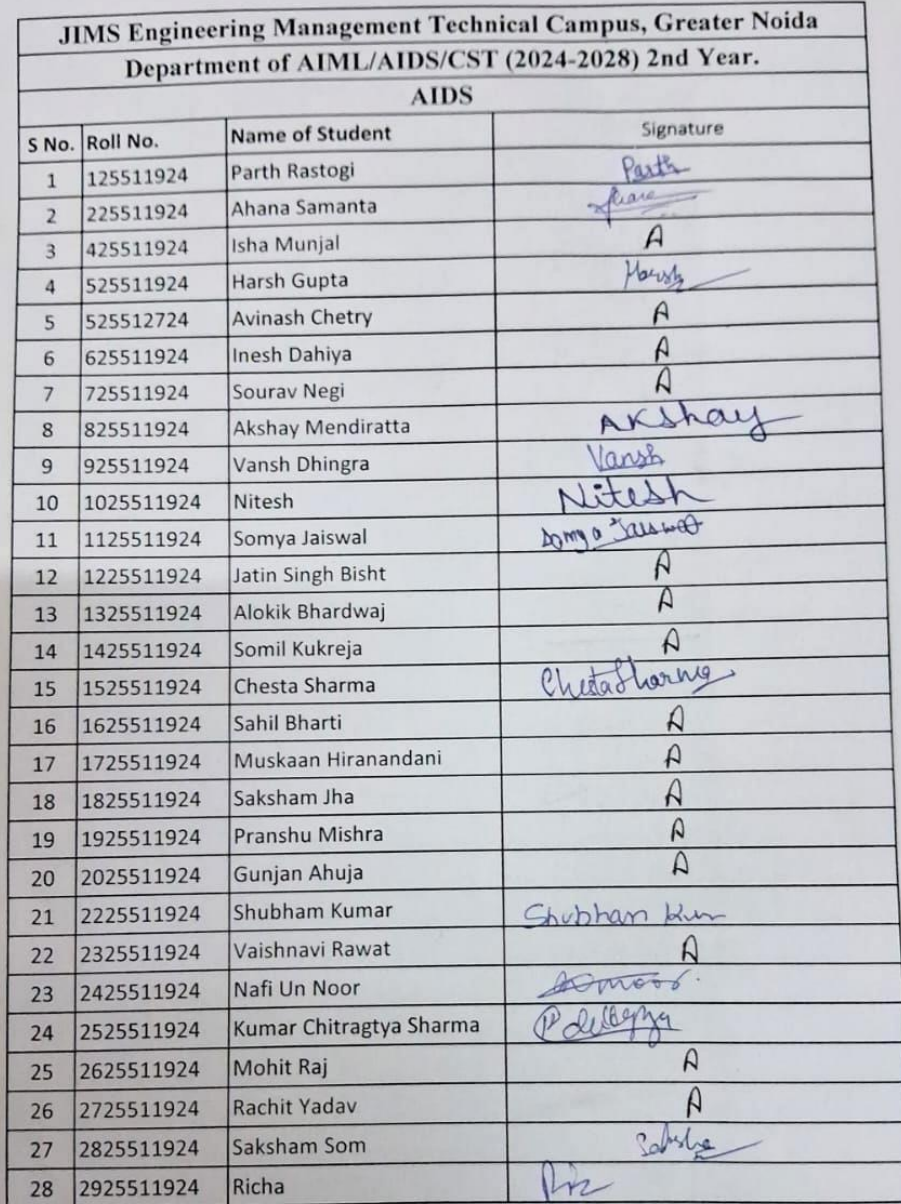 JIMS Engineering Management Technical Campus, Greater Noida
Department of AIML/AIDS/CST (2024-2028) 2nd Year.
AIDS
S No. Roll No. Name of Student Signature
1 125511924 Parth Rastogi Parth
2 225511924 Ahana Samanta
3 425511924 Isha Munjal A
4 525511924 Harsh Gupta Harsh
5 525512724 Avinash Chetry A
6 625511924 Inesh Dahiya A
7 725511924 Sourav Negi A
8 825511924 Akshay Mendiratta AKshay
9 925511924 Vansh Dhingra Vansh
10 1025511924 Nitesh Nitesh
11 1125511924 Somya Jaiswal Somya Jaiswal
12 1225511924 Jatin Singh Bisht A
13 1325511924 Alokik Bhardwaj A
14 1425511924 Somil Kukreja A
15 1525511924 Chesta Sharma Chesta Sharma
16 1625511924 Sahil Bharti A
17 1725511924 Muskaan Hiranandani A
18 1825511924 Saksham Jha A
19 1925511924 Pranshu Mishra A
20 2025511924 Gunjan Ahuja A
21 2225511924 Shubham Kumar Shubham
22 2325511924 Vaishnavi Rawat A
23 2425511924 Nafi Un Noor
24 2525511924 Kumar Chitragtya Sharma
25 2625511924 Mohit Raj A
26 2725511924 Rachit Yadav A
27 2825511924 Saksham Som
28 2925511924 Richa